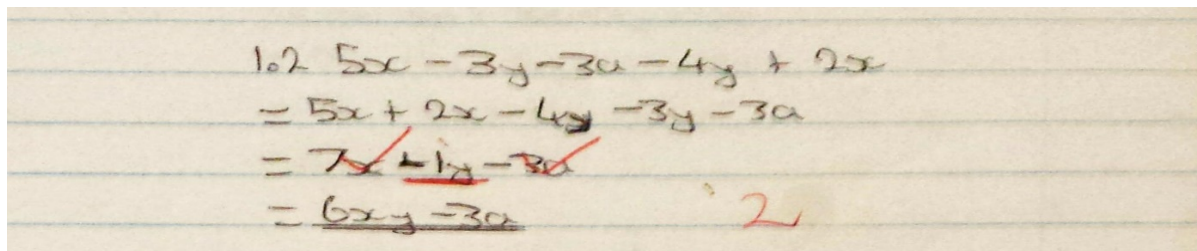 1.2 5x - 3y - 3a - 4y + 2x
= 5x + 2x - 4y - 3y - 3a
= 7x - 1y - 3a
= 6xy - 3a
2